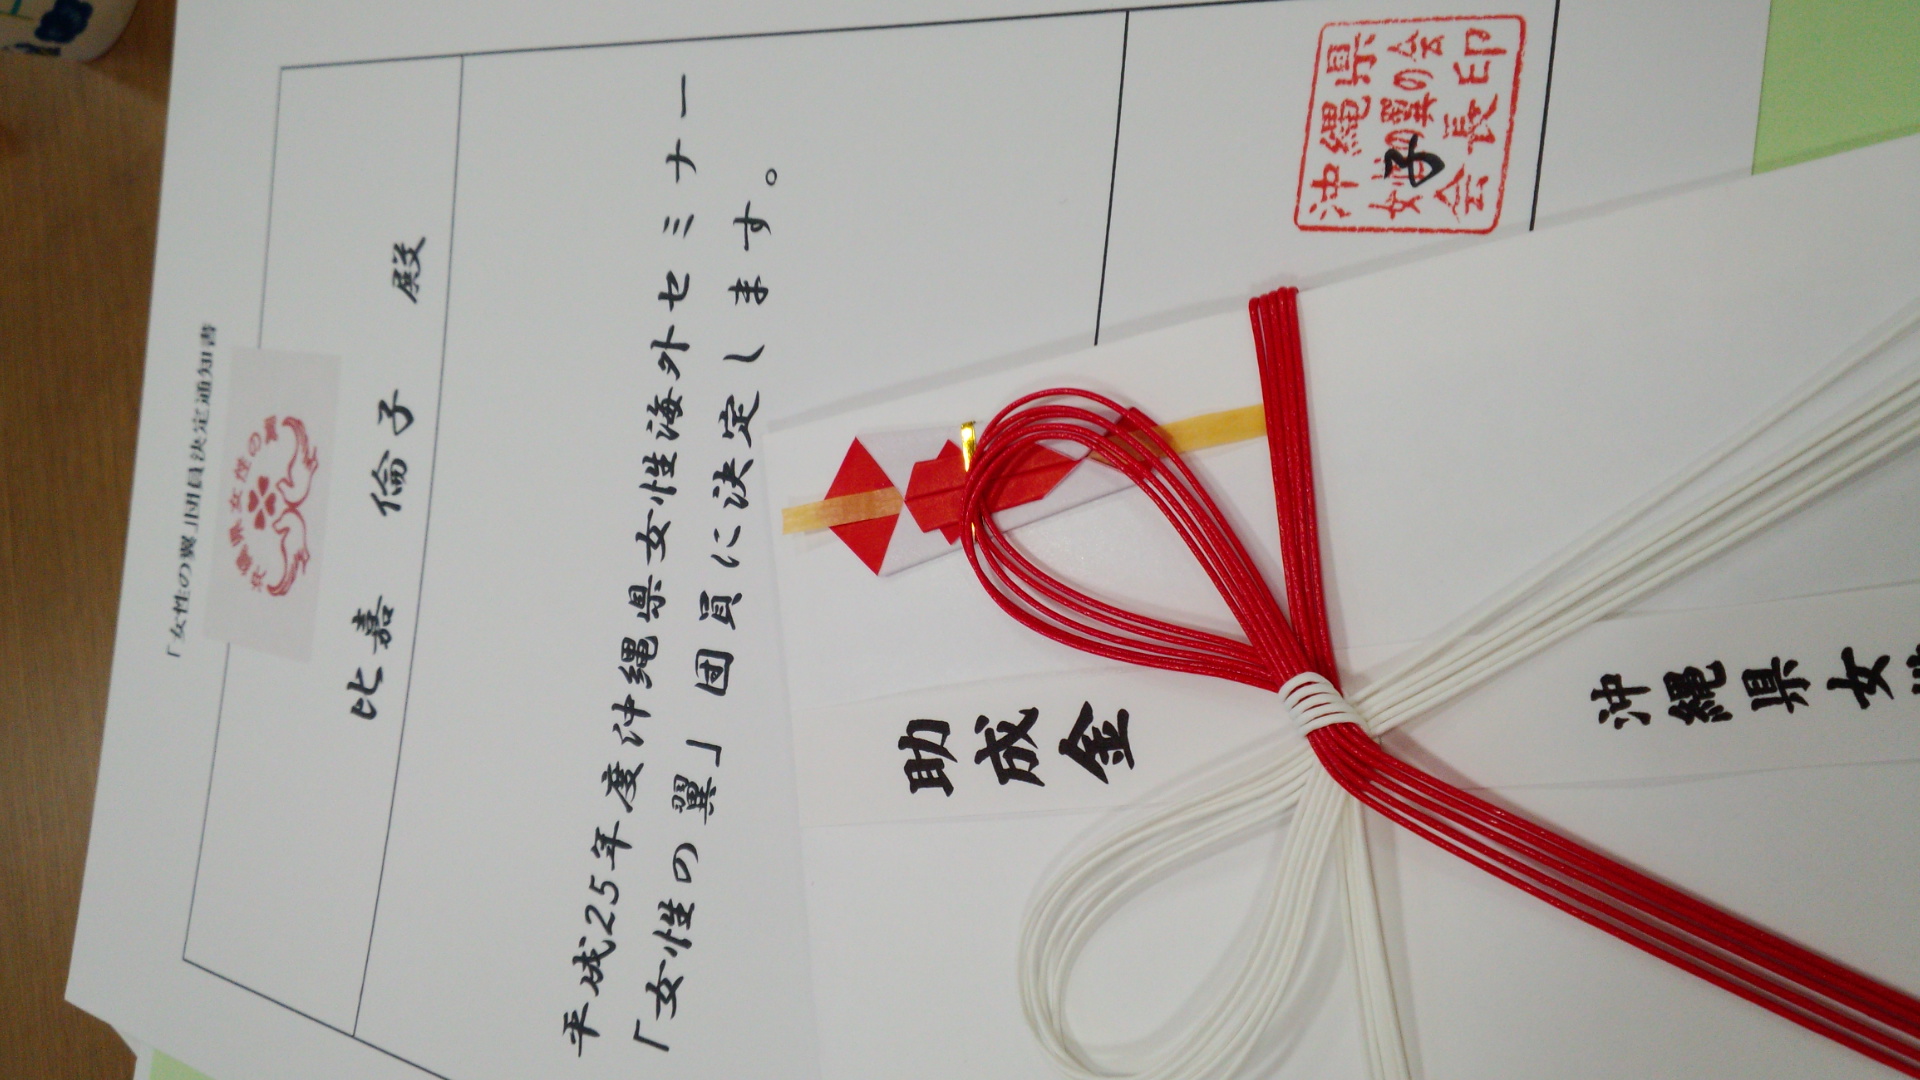 「女性の翼」団員決定通知書
沖縄県女性の翼
比嘉 倫子 殿
平成25年度沖縄県女性海外セミナー
「女性の翼」団員に決定します。
沖縄県
女性の翼の会
会長印
子
助成金
沖縄県女性